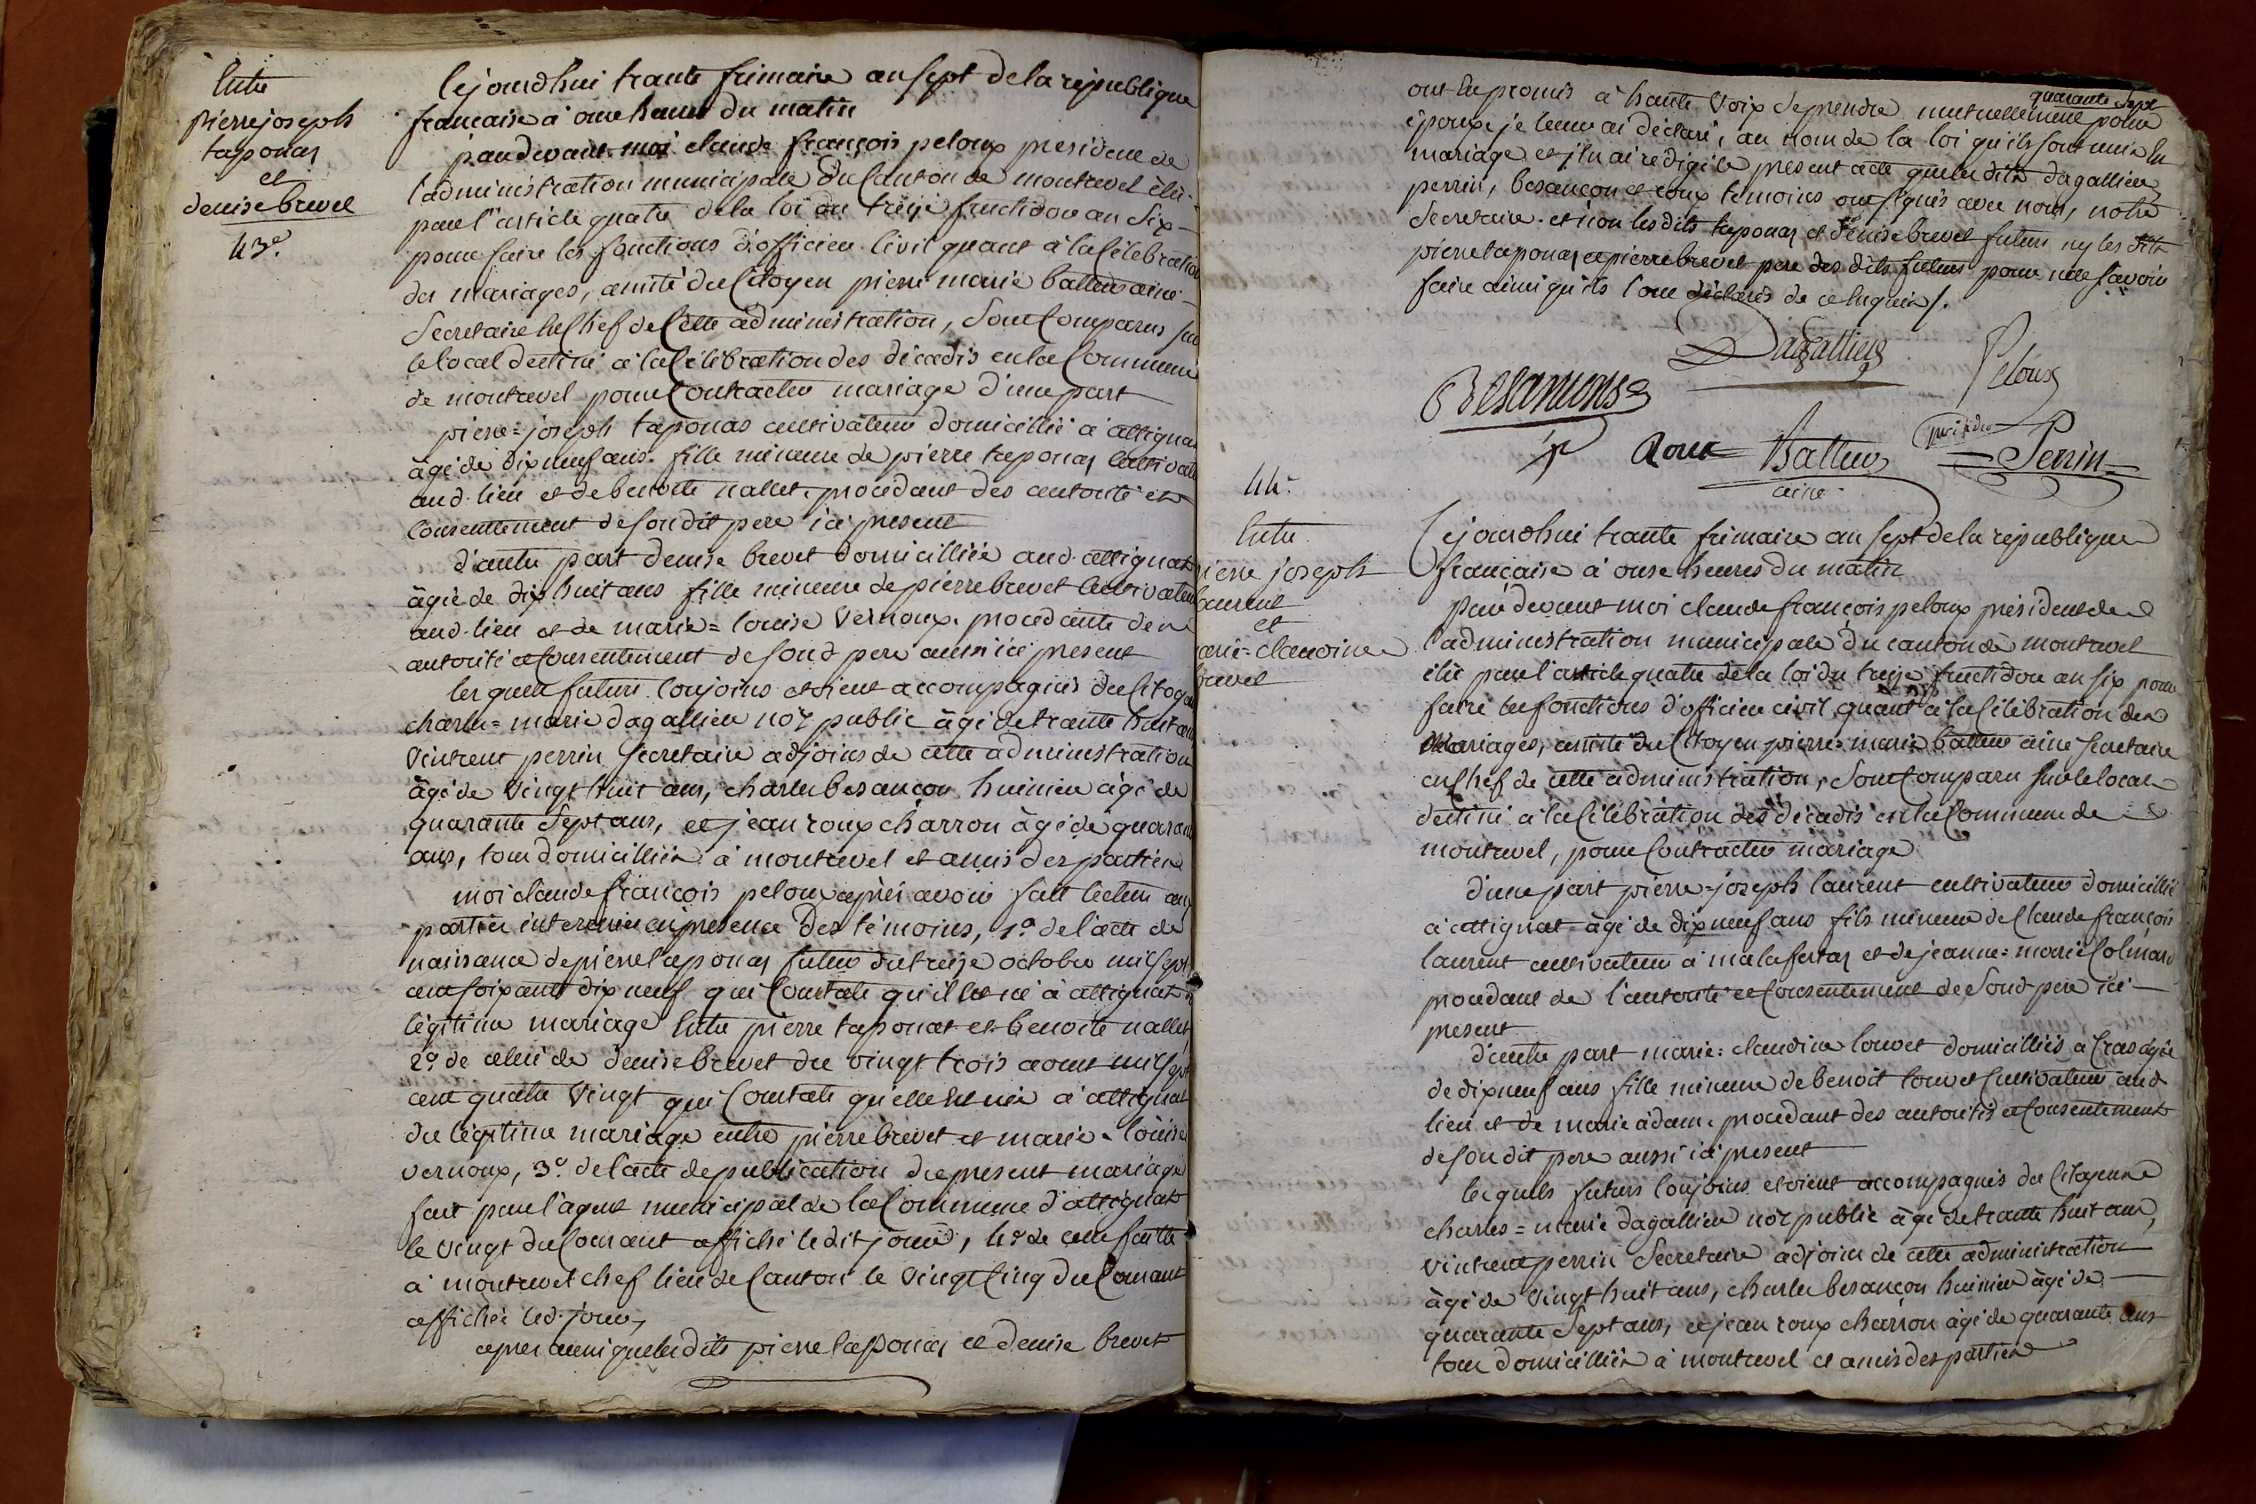 Entre
pierre joseph
taponas
et
denise brevet
43e.
Cejourdhui trante frimaire an sept de la république
francaise à onze heures du matin
pardevant moi claude françois peloux president de
l'administration municipale du canton de montrevel élu
par l'article quatre de la loi du treize fructidor an six
pour faire les fonctions d'officier civil quant à la célébration
des mariages, assisté du Citoyen pierre marie battur ainé
Secretaire en Chef de Cette administration, sont Comparus sur
le local destiné à la Célébration des décadis en la Commune
de montrevel pour Contracter mariage d'une part
pierre=joseph taponas cultivateur domicillié à attignat
âgé de dix neuf ans. fille mineure de pierre taponas cultivateur
aud. lieu et de benoite nallet. procédant des autorité et
Consentement de son dit pere ici present
d'autre part denise brevet domicilliée aud. attignat
âgée de dix huit ans fille mineure de pierre brevet cultivateur
aud. lieu et de marie=louise vernoux. procedante de
autorité et Consentement de sond. pere aussi ici present
lesquels futurs Conjoins etoient accompagnés du Citoyen
charles=marie dagallier nore public âgé de trante huit ans
vintrent perrin secretaire adjoins de cette administration
âgé de vingt huit ans, charles besançon huissier âgé de
quarante sept ans, et jean roux charron âgé de quarante
ans, tous domicilliés à montrevel et amis des parties
moi claude françois peloux après avoir fait lecture aux
parties interessées en presence des témoins, 1o. de l'acte de
naissance de pierre taponas futur du treize octobre mil sept
cent soixante dix neuf qui Constate qu'il est né à attignat du
légitime mariage Entre pierre taponas et benoite nallet,
2o. de celui de denise brevet du vingt trois aout mil sept
cent quatre vingt qui Constate qu'elle est née à attignat
du légitime mariage entre pierre brevet et marie=louise
vernoux, 3o. de l'acte de publication du present mariage
fait par l'agent municipal de la Commune d'attignat
le vingt du Courant affiché ledit jour, 4o. de celle faitte
à montrevel chef lieu de Canton le vingt Cinq du Courant
affichée led. jour,
après aussi que lesdits pierre taponas et denise brevet
quarante sept
ont Eu promis à haute voix de prendre mutuellement pour
époux, je leur ai déclaré, au nom de la loi qu'ils sont unis en
mariage. et j'en ai redigé le present acte que lesdits dagallier
perrin, besançon et roux temoins ont signés avec nous, notre
Secretaire. et non lesdits taponas et denise brevet futurs ny les dits
pierre taponas et pierre brevet pere des dits futurs pour ne le savoir
faire ainsi qu'ils l'ont déclarés de ce Enquis /.
Dagallier
Peloux
presidt
Besançons
j. Roux
Battur
ainé
Perrin
44e.
Entre
pierre joseph
laurent
et
marie=claudine
louvet
Cejourdhui trante frimaire an sept de la république
française à onze heures du matin
par devant moi claude françois peloux président de
l'administration municipale du canton de montrevel
élu par l'article quatre de la loi du treize fructidor an six pour
faire les fonctions d'officier civil quant à la Célébration des
Mariages, assisté du Citoyen pierre=marie battur ainé secretaire
en Chef de cette administration, sont Comparu sur le local
destiné à la Célébration des décadis en la Commune de
montrevel, pour Contracter mariage
d'une part pierre=joseph laurent cultivateur domicillié
à attignat âgé de dix neuf ans fils mineur de Claude françois
laurent cultivateur à malafretaz et de jeanne=marie Colinard
procedant de l'autorité et Consentement de Sond. pere ici
present
d'autre part marie=claudine louvet domicilliée à Cras âgée
de dix neuf ans fille mineure de benoit louvet Cultivateur aud.
lieu et de marie adam. procedant des autorités et Consentement
de son dit pere aussi ici present
lesquels futurs Conjoins etoient accompagnés du Citoyenne
charles=marie dagallier nore public âgé de trante huit ans,
vintrent perrin Secretaire adjoins de cette administration
âgé de vingt huit ans, charles besançon huissier âgé de
quarante Sept ans, et jean roux charron âgé de quarante ans
tous domicilliés à montrevel et amis des parties